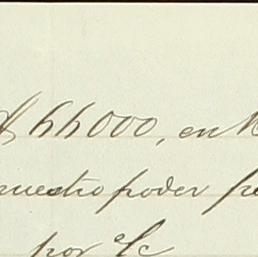 $ 66000, en
nuestro poder
por %c